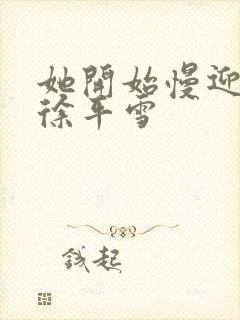 她開始慢迎
徐平雪
錢起